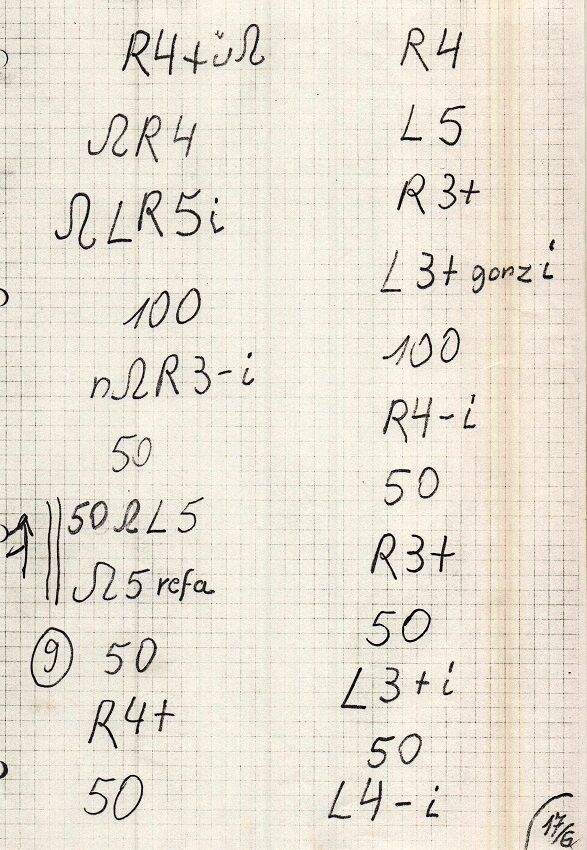 R4+üΩ
ΩR4
ΩLR5i
100
nΩR3-i
50
50ΩL5
Ω5refa
9 50
R4+
50
R4
L5
R3+
L3+ gonz i
100
R4-i
50
R3+
50
L3+i
50
L4-i
17/6